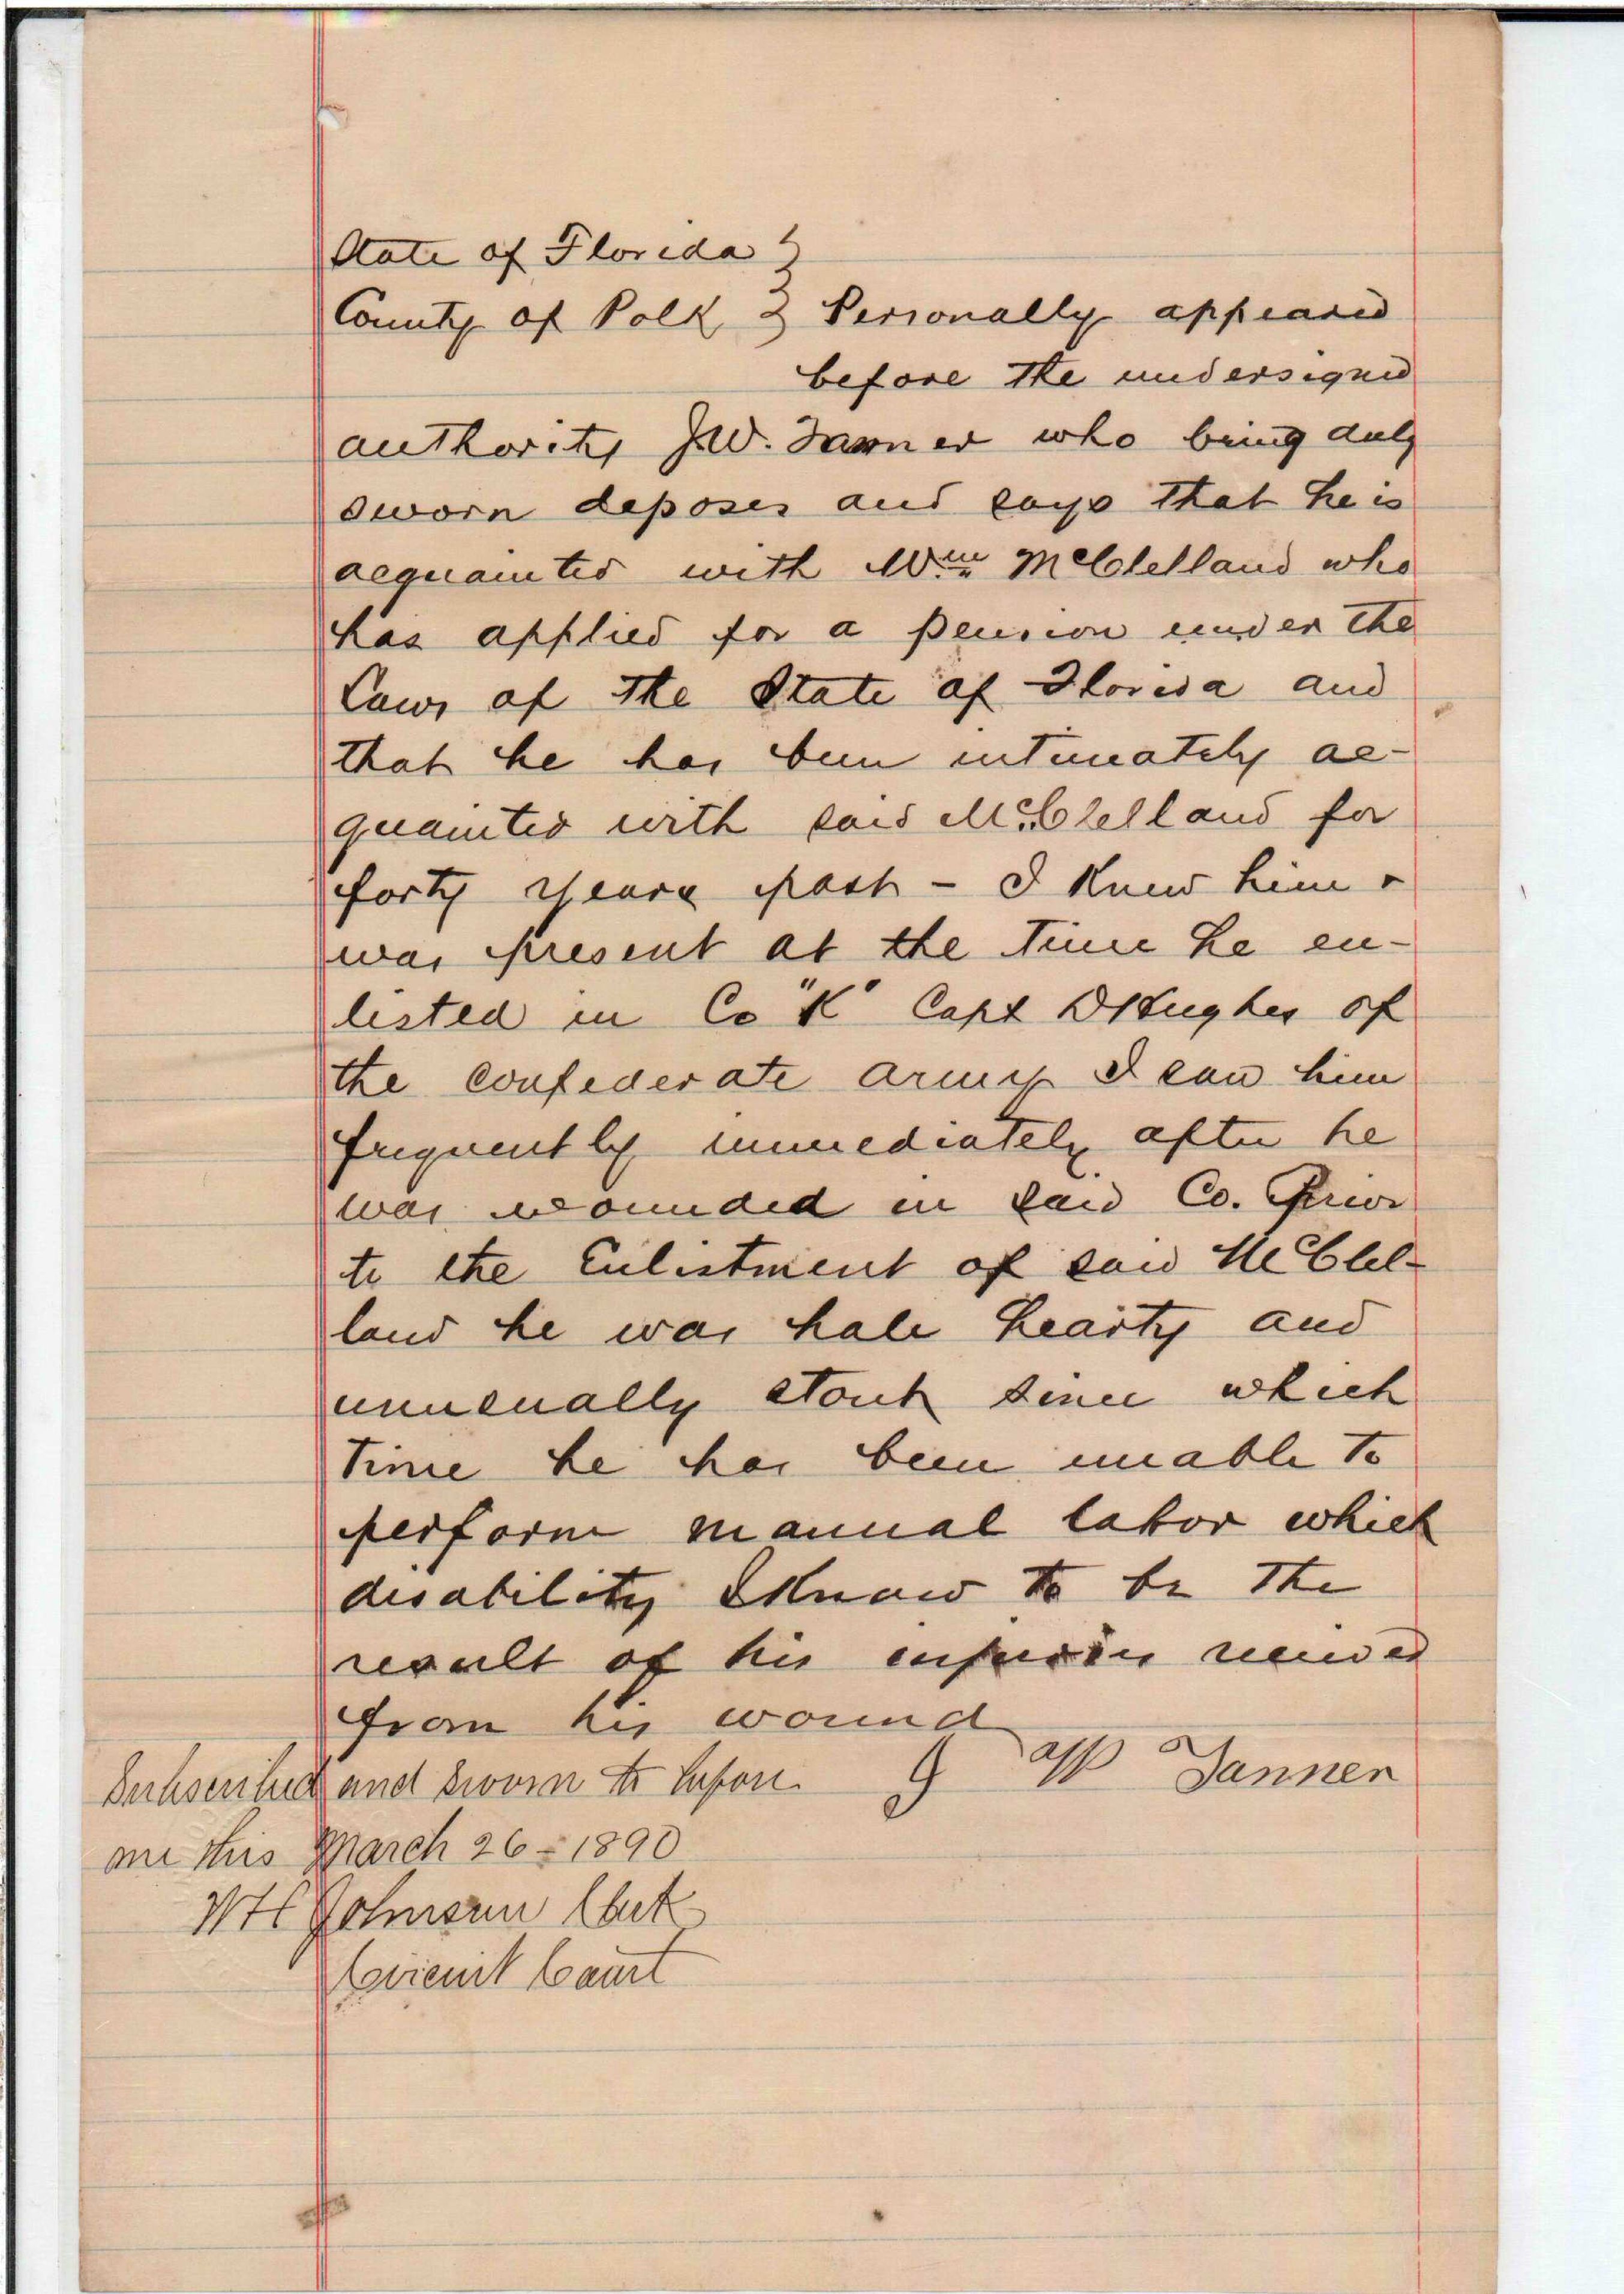 State of Florida }
County of Polk } Personally appeared
before the undersigned
authority J.W. Tanner who being duly
sworn deposes and says that he is
acquainted with Wm McClelland who
has applied for a pension under the
Laws of the State of Florida and
that he has been intimately ac-
quainted with said McClelland for
forty years past - I knew him &
was present at the time he en-
listed in Co "K" Capt Hughes of
the confederate army I saw him
frequently immediately after he
was wounded in said Co. Prior
to the Enlistment of said McClel-
land he was hale hearty and
unusually stout since which
time he has been unable to
perform manual labor which
disability I know to be the
result of his injuries received
from his wound
J W Tanner
Subscribed and sworn to before
me this March 26 - 1890
WH Johnson Clerk
Circuit Court